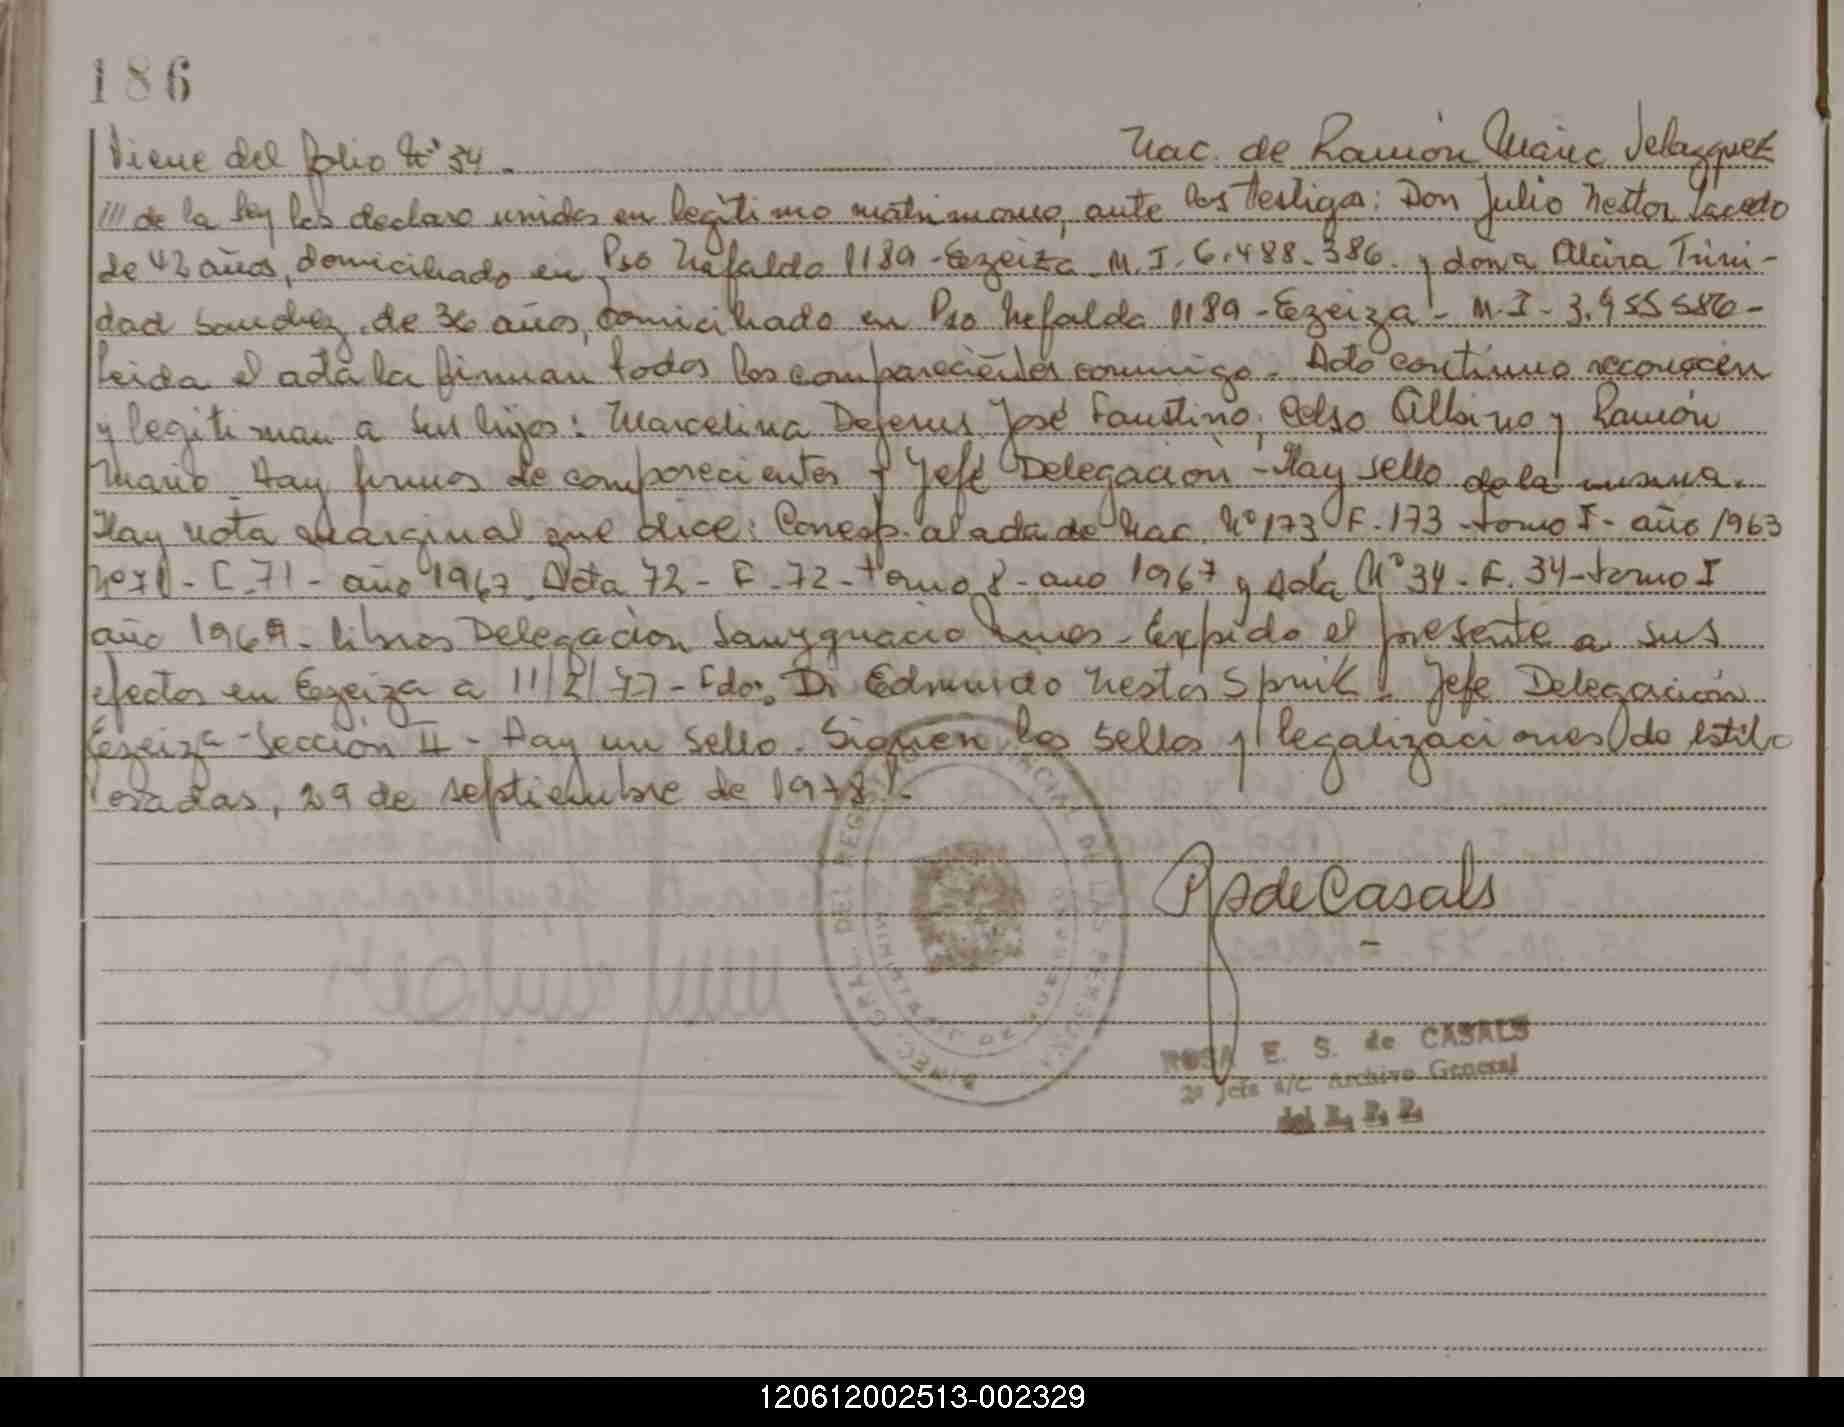 186
Viene del folio Nº 34.
Nac. de Ramón Mario Velazquez
/// de la ley los declaro unidos en legítimo matrimonio, ante los testigos: Don Julio Nestor
de 42 años, domiciliado en Pso Mafalda 1189 - Ezeiza - M. I. 6.488.386. y doña Alcira Trini-
dad Sanchez, de 36 años, domiciliado en Pso Mafalda 1189 - Ezeiza - M. I - 3.955586 -
Leida el acta la firman todos los comparecientes conmigo. Acto contínuo reconocen
y legitiman a sus hijos: Marcelina Dejesus, José Faustino, Celso Albino y Ramón
Mario. Hay firmas de comparecientes y Jefe Delegación - Hay sello de la misma.
Hay nota marginal que dice: Corresp. al acta de Nac. Nº 173 F. 173 - tomo I - año 1963
Nº 71 - F. 71 - año 1967. Acta 72 - F. 72 - tomo 8 - año 1967 y Acta Nº 34 - F. 34 - tomo I
año 1969 - libros Delegación San Ygnacio - Expido el presente a sus
efectos en Ezeiza a 11/2/77 - Fdo. Dr Edmundo Nestor - Jefe Delegación
Ezeiza - Sección II - Hay un sello. Siguen los sellos y legalizaciones de estilo
Posadas, 29 de septiembre de 1978.
DIREC. GRAL. DEL REGISTRO PROVINCIAL DE LAS PERSONAS
MINISTERIO DE GOBIERNO
RS de Casals
ROSA E. S. de CASALS
2º Jefe A/C Archivo General
del R. P. P.
120612002513-002329